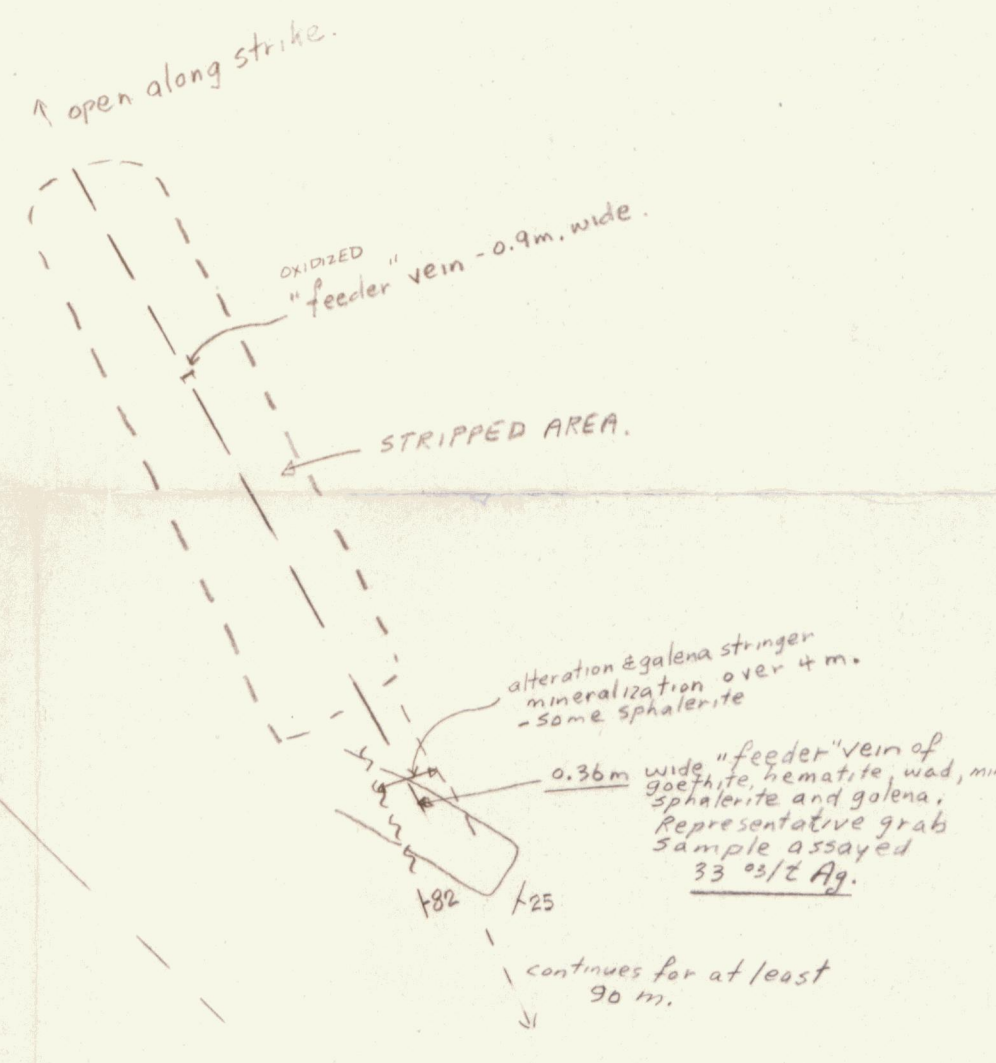 ↑ open along strike.
OXIDIZED
"feeder" vein - 0.9m. wide.
STRIPPED AREA.
alteration & galena stringer
mineralization over 4 m.
- some sphalerite
0.36m wide "feeder" vein of
goethite, hematite, wad,
sphalerite and galena.
Representative grab
sample assayed
33 oz/t Ag.
82
25
continues for at least
90 m.